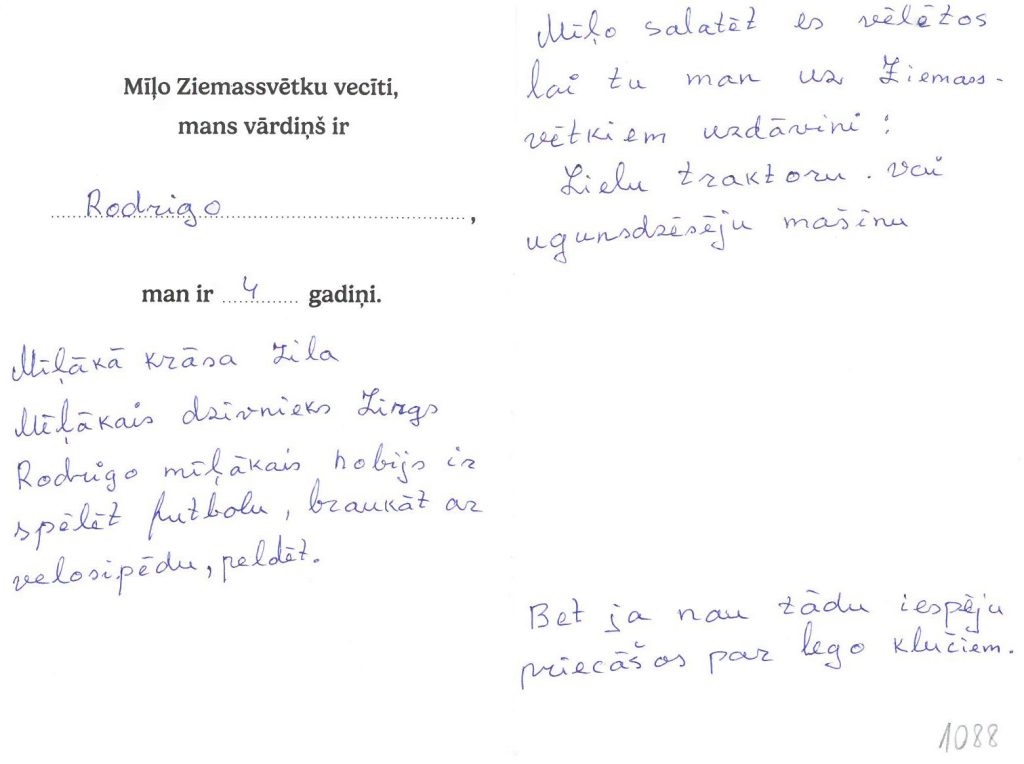 Mīļo Ziemassvētku vecīti,
mans vārdiņš ir
Rodrigo,
man ir 4 gadiņi.
Mīļākā krāsa zila
Mīļākais dzīvnieks Zirgs
Rodrigo mīļākais hobijs ir
spēlēt futbolu, braukāt ar
velosipēdu, peldēt.
Mīļo salatēt es vēlētos
lai tu man uz Ziemass-
vētkiem uzdāvini:
Lielu traktoru. vai
ugunsdzēsēju mašīnu
Bet ja nau tādu iespēju
priecāšos par lego klučiem.
1088